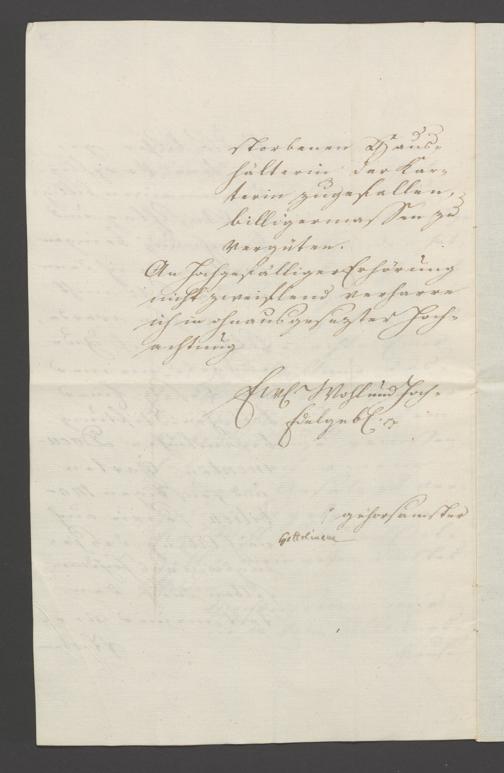 storbenen Haus-
hälterin der Kar-
terin zugefallen,
billigermassen zu
vergüten.
An hochgefälliger Erhörung
nicht zweiflend verharre
ich in ohnausgesezter Hoch-
achtung
Eur. Wohl und Hoch-
Edelgeb.
gehorsamster